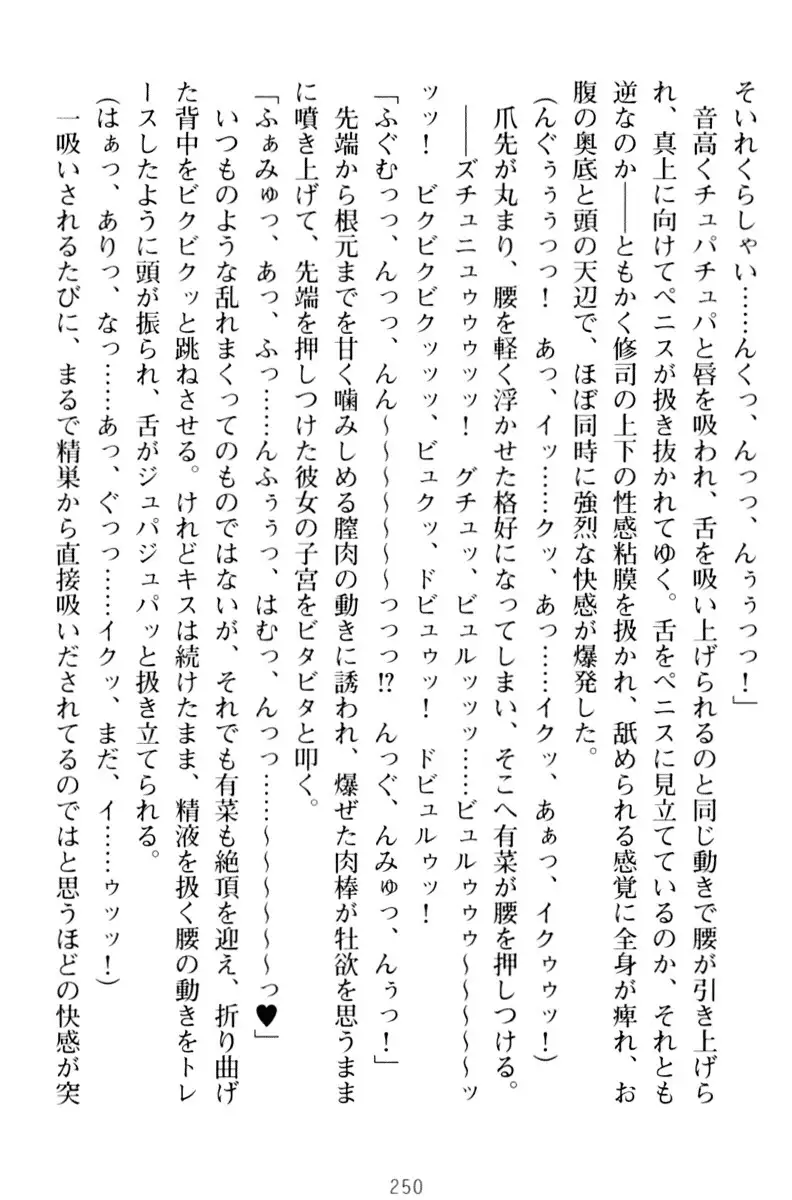 そいれくらしゃい……んくっ、んっっ、んぅぅっっ！」
　音高くチュパチュパと唇を吸われ、舌を吸い上げられるのと同じ動きで腰が引き上げら
れ、真上に向けてペニスが扱き抜かれてゆく。舌をペニスに見立てているのか、それとも
逆なのか――ともかく修司の上下の性感粘膜を扱かれ、舐められる感覚に全身が痺れ、お
腹の奥底と頭の天辺で、ほぼ同時に強烈な快感が爆発した。
（んぐぅぅぅっっ！　あっ、イッ……クッ、あっ……イクッ、あぁっ、イクゥゥッ！）
　爪先が丸まり、腰を軽く浮かせた格好になってしまい、そこへ有菜が腰を押しつける。
　――ズチュニュゥゥゥッッ！　グチュッ、ビュルッッッ……ビュルゥゥゥ～～～～～ッ
ッッ！　ビクビクビクッッッ、ビュクッ、ドビュゥッ！　ドビュルゥッ！
「ふぐむっっ、んっっ、んん～～～～～～～っっっ!?　んっぐ、んみゅっ、んぅっ！」
　先端から根元までを甘く噛みしめる膣肉の動きに誘われ、爆ぜた肉棒が牡欲を思うまま
に噴き上げて、先端を押しつけた彼女の子宮をビタビタと叩く。
「ふぁみゅっ、あっ、ふっ……んふぅぅっ、はむっ、んっっ……～～～～～～っ♥」
　いつものような乱れまくってのものではないが、それでも有菜も絶頂を迎え、折り曲げ
た背中をビクビクッと跳ねさせる。けれどキスは続けたまま、精液を扱く腰の動きをトレ
ースしたように頭が振られ、舌がジュパジュパッと扱き立てられる。
（はぁっ、ありっ、なっ……あっ、ぐっっ……イクッ、まだ、イ……ゥッッ！）
　一吸いされるたびに、まるで精巣から直接吸いだされてるのではと思うほどの快感が突
250